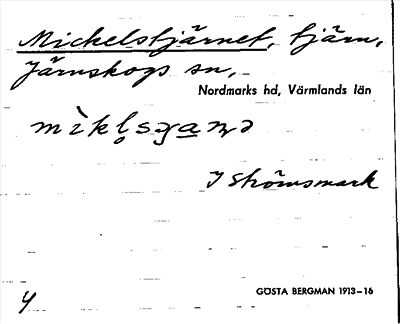 Mickelstjärnet, tjärn,
Järnskogs sn,
Nordmarks hd, Värmlands län
I Strömsmark
GÖSTA BERGMAN 1913–16